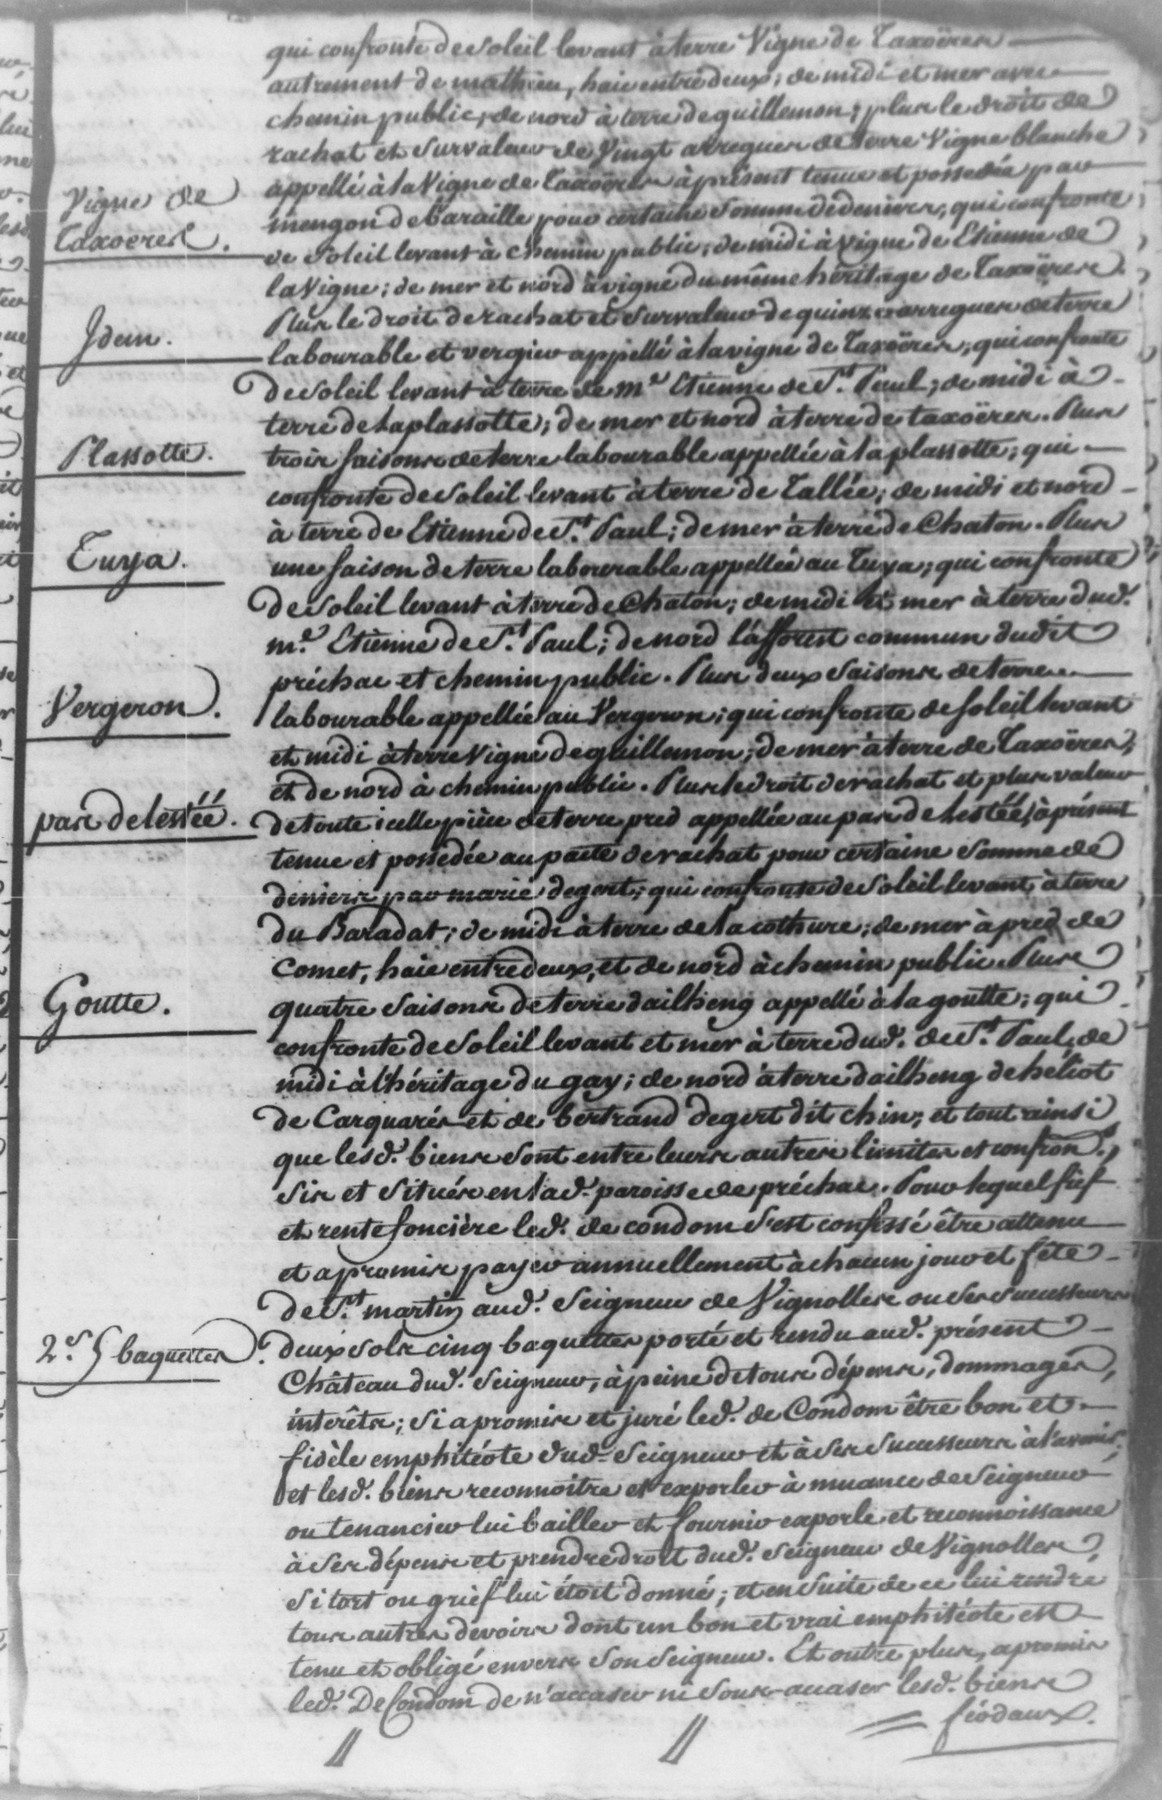 qui confronte de Soleil levant à terre Vigne de Taxoëres
autrement de mathieu, haie entre deux; de midi et mer avec
chemin public; de nord à terre de guillemon; plus le droit de
rachat et Survaleur de Vingt arregues de terre Vigne blanche
Vigne de
Taxoeres.
appellé à la Vigne de Taxoëres à présent tenue et possedée par
mengon de Caraille pour certaine Somme de deniers, qui confronte
de Soleil levant à chemin public; de midi à vigne de Etienne de
la Vigne; de mer et nord à vigne du même héritage de Taxoëres.
Jdem.
Plus le droit de rachat et Survaleur de quinze arregues de terre
labourable et vergier appellé à la vigne de Taxoëres; qui confronte
de Soleil levant à terre de m.e Etienne de S.t Paul; de midi à
terre de la plassotte; de mer et nord à terre de taxoëres. Plus
Plassotte.
trois Saisons de terre labourable appellée à la plassotte; qui
confronte de Soleil levant à terre de Tallée; de midi et nord
à terre de Etienne de S.t Paul; de mer à terre de Chaton. Plus
Tuya.
une Saison de terre labourable appellée au Tuya; qui confronte
de Soleil levant à terre de Chaton; de midi et mer à terre dud.
m.e Etienne de S.t Paul; de nord l'afforest commun dudit
préchac et chemin public. Plus deux Saisons de terre
Vergeron.
labourable appellée au Vergeron; qui confronte de Soleil levant
et midi à terre Vigne de guillemon; de mer à terre de Taxoëres;
et de nord à chemin public. Plus le droit de rachat et plus valeur
parc de lestéé.
de toute icelle pièce de terre pred appellée au parc de Lestéé, à présent
tenue et possedée au pacte de rachat pour certaine Somme de
deniers par marie degert; qui confronte de Soleil levant à terre
du Baradat; de midi à terre de la cothure; de mer à pred de
Comet, haie entre deux, et de nord à chemin public. Plus
Goutte.
quatre Saisons de terre d'ailheng appellé à la goutte; qui
confronte de Soleil levant et mer à terre dud. de S.t Paul, de
midi à l'héritage du gay; de nord à terre d'ailheng de héliot
de Carquarés et de bertrand degert dit chin; et tout ainsi
que lesd. biens Sont entre leurs autres limites et confron.s,
Sis et Situés en lad. paroisse de préchac. Pour lequel fief
et rente foncière led. de condom S'est confessé être attenu
et a promis payer annuellement à chacun jour et fête
de S.t martin aud. Seigneur de Vignolles ou Ses Successeurs
2.s 5 baguettes.
deux Sols cinq baquettes porté et rendu aud. présent
Château dud. Seigneur, à peine de tous dépens, dommages,
interêts; Si a promis et juré led. de Condom être bon et
fidèle emphitéote dud. Seigneur et à Ses Successeurs à l'avenir,
et lesd. biens reconnoitre et exporler à muance de Seigneur
ou tenancier lui bailler et fournir exporle et reconnoissance
à Ses dépens et prendre droit dud. Seigneur de Vignolles
Si tort ou grief lui étoit donné; et en Suite de ce lui rendre
tous autres devoirs dont un bon et vrai emphitéote est
tenu et obligé envers Son Seigneur. Et outre plus, a promis
led. De Condom de n'accaser ni Sous-accaser lesd. biens
féodaux.